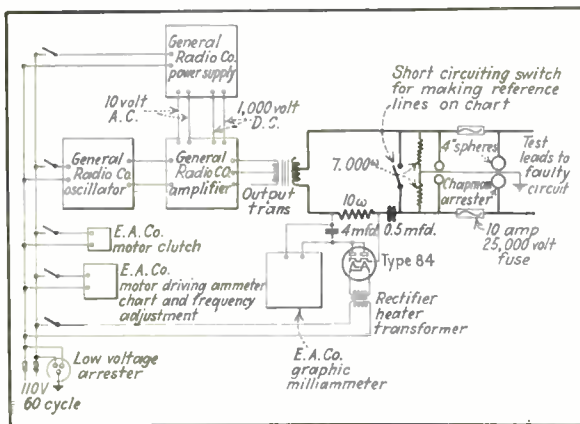 General
Radio Co.
power supply
10 volt
A.C.
1,000 volt
D.C.
Short circuiting switch
for making reference
lines on chart
General
Radio Co.
oscillator
General
Radio Co.
amplifier
Output
trans
7,000ω
4" spheres
Chapman
arrester
Test
leads to
faulty
circuit
10ω
4 mfd.
0.5 mfd.
10 amp
25,000 volt
fuse
E.A.Co.
motor clutch
Type 84
E.A.Co.
motor driving ammeter
chart and frequency
adjustment
Rectifier
heater
transformer
Low voltage
arrester
E.A.Co.
graphic
milliammeter
110V
60 cycle